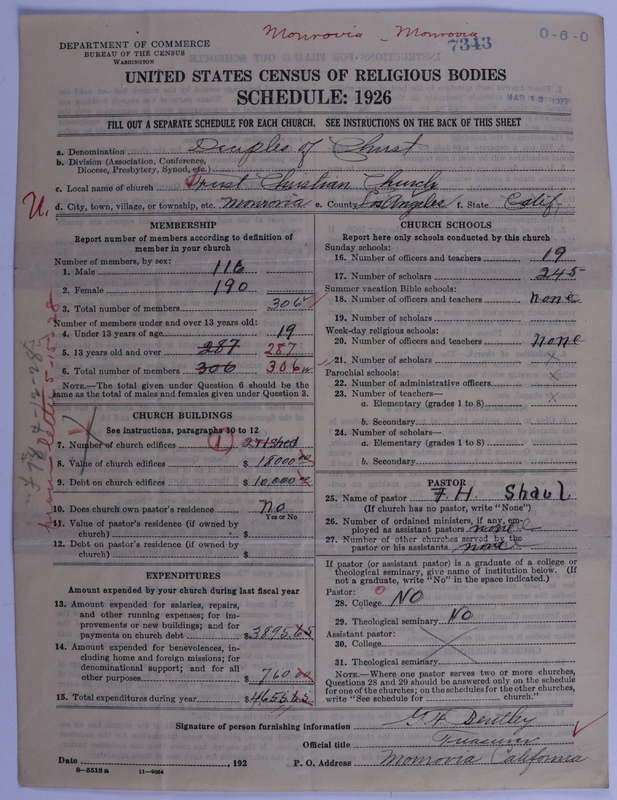 Monrovia - Monrovia
7343
0-6-0
DEPARTMENT OF COMMERCE
BUREAU OF THE CENSUS
WASHINGTON
UNITED STATES CENSUS OF RELIGIOUS BODIES
SCHEDULE: 1926
MAR 12
FILL OUT A SEPARATE SCHEDULE FOR EACH CHURCH. SEE INSTRUCTIONS ON THE BACK OF THIS SHEET
a. Denomination Deciples of Christ
b. Division (Association, Conference,
Diocese, Presbytery, Synod, etc.)
c. Local name of church First Christian Church
U. d. City, town, village, or township, etc. Monrovia e. County Los Angeles f. State Calif.
MEMBERSHIP
Report number of members according to definition of
member in your church
Number of members, by sex:
1. Male 116
2. Female 190
3. Total number of members 306
Number of members under and over 13 years old:
4. Under 13 years of age 19
5. 13 years old and over 287 287
6. Total number of members 306 306
NOTE.—The total given under Question 6 should be the
same as the total of males and females given under Question 3.
CHURCH BUILDINGS
See instructions, paragraphs 10 to 12
7. Number of church edifices 1
8. Value of church edifices $ 18000.00
9. Debt on church edifices $ 10,000.00
10. Does church own pastor's residence? No
Yes or No
11. Value of pastor's residence (if owned by
church) $
12. Debt on pastor's residence (if owned by
church) $
EXPENDITURES
Amount expended by your church during last fiscal year
13. Amount expended for salaries, repairs,
and other running expenses; for im-
provements or new buildings; and for
payments on church debt $ 3895.65
14. Amount expended for benevolences, in-
cluding home and foreign missions; for
denominational support; and for all
other purposes $ 760.00
15. Total expenditures during year $ 4655.65
CHURCH SCHOOLS
Report here only schools conducted by this church
Sunday schools:
16. Number of officers and teachers 19
17. Number of scholars 245
Summer vacation Bible schools:
18. Number of officers and teachers none
19. Number of scholars
Week-day religious schools:
20. Number of officers and teachers none
21. Number of scholars x
Parochial schools:
22. Number of administrative officers x
23. Number of teachers—
a. Elementary (grades 1 to 8) x
b. Secondary
24. Number of scholars—
a. Elementary (grades 1 to 8)
b. Secondary
PASTOR
25. Name of pastor F. H. Shaul
(If church has no pastor, write "None")
26. Number of ordained ministers, if any, em-
ployed as assistant pastors none
27. Number of other churches served by the
pastor or his assistants none
If pastor (or assistant pastor) is a graduate of a college or
theological seminary, give name of institution below. (If
not a graduate, write "No" in the space indicated.)
Pastor:
28. College NO
29. Theological seminary No
Assistant pastor:
30. College
31. Theological seminary
NOTE.—Where one pastor serves two or more churches,
Questions 28 and 29 should be answered only on the schedule
for one of the churches; on the schedules for the other churches,
write "See schedule for church."
Signature of person furnishing information Bentley
Official title Treasurer
Date , 192 P. O. Address Monrovia California
8-5518a 11-9064